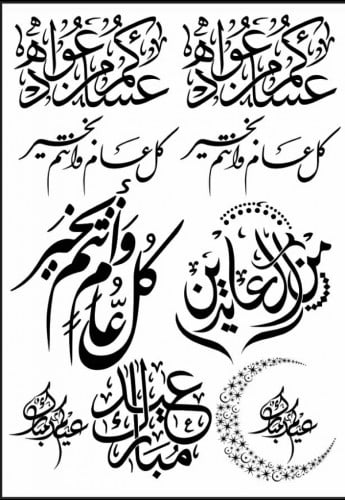 عساكم من عواده
عساكم من عواده
كل عام وانتم بخير
كل عام وانتم بخير
من العايدين
كُل عَامٍ وَأنتم بخير
عيدكم مبارك
عيد مبارك
عيدكم مبارك